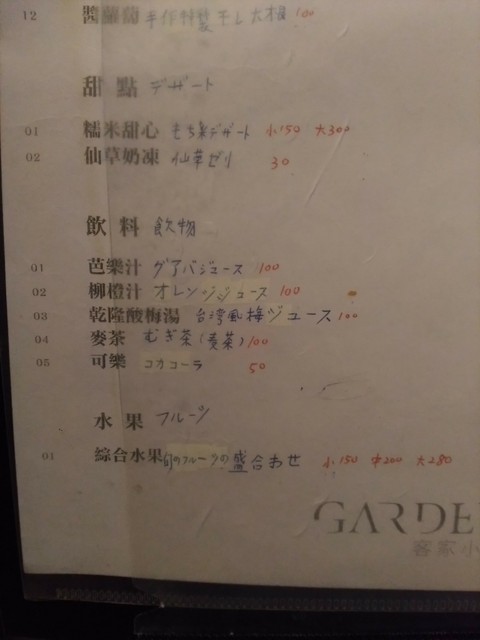 12 醬蘿蔔 手作特製干し大根 100
甜點 デザート
01 糯米甜心 もち米デザート 小150 大300
02 仙草奶凍 仙草ゼリ 30
飲料 飲物
01 芭樂汁 グアバジュース 100
02 柳橙汁 オレンジジュース 100
03 乾隆酸梅湯 台湾風梅ジュース 100
04 麥茶 むぎ茶(麦茶) 100
05 可樂 コカコーラ 50
水果 フルーツ
01 綜合水果 旬のフルーツの盛合わせ 小150 中200 大280
GARDE
客家小